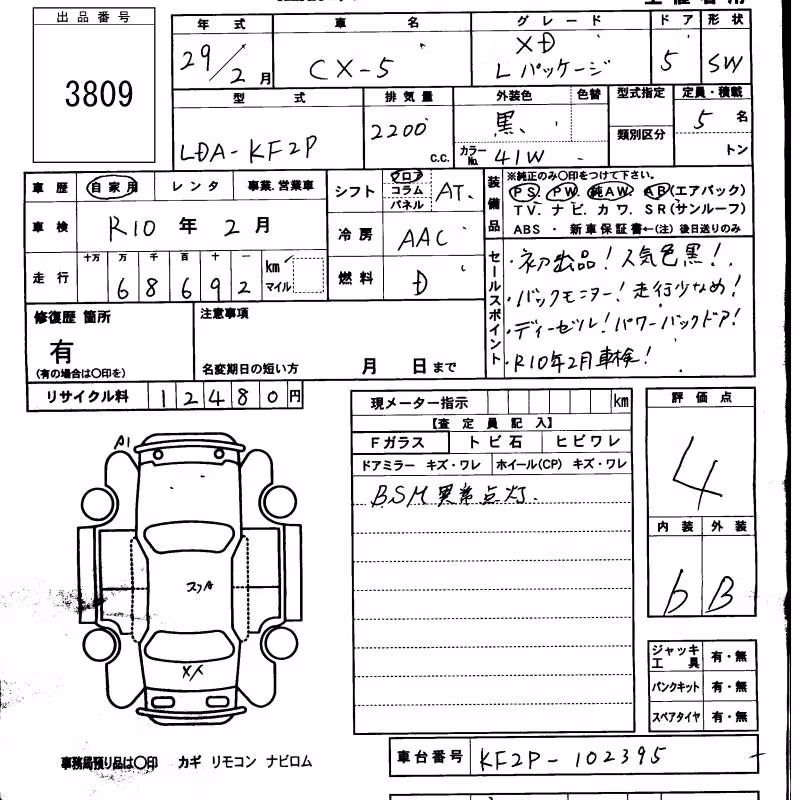 出品番号
3809
年式
29/2月
車名
CX-5
グレード
XD
Lパッケージ
ドア
5
形状
SW
型式
LDA-KF2P
排気量
2200 c.c.
外装色
黒
色替
カラーNo. 41W
型式指定
類別区分
定員・積載
5名
トン
車歴 自家用 レンタ 事業.営業車
車検 R10年 2月
走行 十万 万 千 百 十 一
68692
km
マイル
シフト フロア コラム パネル AT.
冷房 AAC
燃料 D
装備品
※純正のみ〇印をつけて下さい。
PS. PW. 純AW. AB(エアバック)
TV. ナビ. カワ. SR(サンルーフ)
ABS ・ 新車保証書←(注)後日送りのみ
セールスポイント
・初出品!人気色黒!
・バックモニター!走行少なめ!
・ディーゼル!パワーバックドア!
・R10年2月車検!
修復歴 箇所
有
(有の場合は〇印を)
注意事項
名変期日の短い方 月 日まで
リサイクル料 12480円
現メーター指示 km
【査定員記入】
Fガラス トビ石 ヒビワレ
ドアミラー キズ・ワレ ホイール(CP) キズ・ワレ
BSM異常点灯.
評価点
4
内装 外装
b B
A1
スリA
XX
ジャッキ工具 有・無
パンクキット 有・無
スペアタイヤ 有・無
事務局預り品は〇印 カギ リモコン ナビロム
車台番号 KF2P-102395